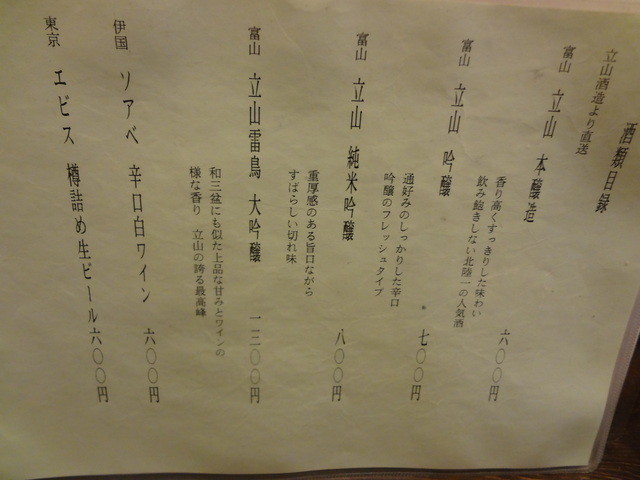 酒類目録
立山酒造より直送
富山 立山 本醸造
香り高くすっきりした味わい
飲み飽きしない北陸一の人気酒
六〇〇円
富山 立山 吟醸
通好みのしっかりした辛口
吟醸のフレッシュタイプ
七〇〇円
富山 立山 純米吟醸
重厚感のある旨口ながら
すばらしい切れ味
八〇〇円
富山 立山雷鳥 大吟醸
和三盆にも似た上品な甘みとワインの
様な香り 立山の誇る最高峰
一三〇〇円
伊国 ソアベ 辛口白ワイン 六〇〇円
東京 エビス 樽詰め生ビール 六〇〇円